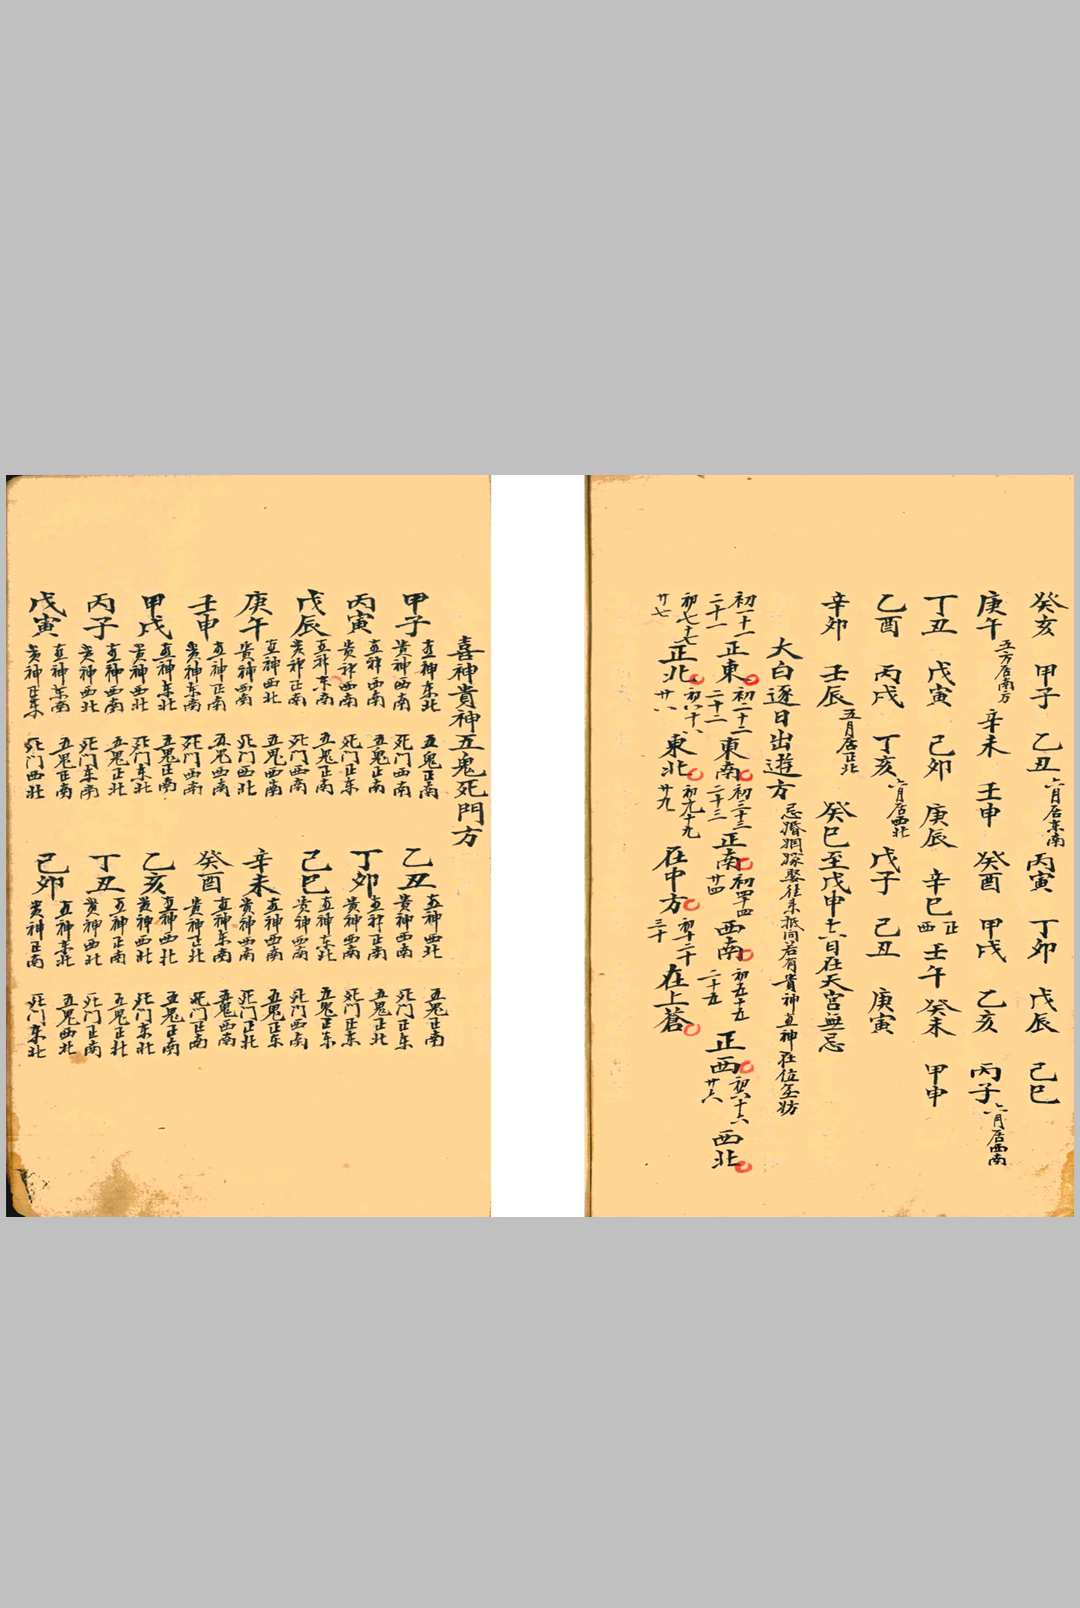 癸亥 甲子 乙丑 六月居东南 丙寅 丁卯 戊辰 己巳
庚午 五方居南方 辛未 壬申 癸酉 甲戌 乙亥 丙子 六月居西南
丁丑 戊寅 己卯 庚辰 辛巳 正西 壬午 癸未 甲申
乙酉 丙戌 丁亥 六月居西北 戊子 己丑 庚寅
辛卯 壬辰 五月居正北 癸巳至戊申十六日在天宫無忌
大白逐日出遊方 忌婚姻嫁娶往来抵向若有貴神直神在位不妨
初一十一 二十一 正東 初二十二 二十二 東南 初三十三 二十三 正南 初四十四 廿四 西南 初五十五 二十五 正西 初六十六 廿六 西北
初七十七 廿七 正北 初八十八 廿八 東北 初九十九 廿九 在中方 初十二十 三十 在上蒼
喜神貴神五鬼死門方
甲子 直神东北 貴神西南 五鬼正南 死门西南 乙丑 直神西北 貴神西南 五鬼正南 死门正东
丙寅 直神西南 貴神西南 五鬼正北 死门正东 丁卯 直神正南 貴神西南 五鬼正北 死门正东
戊辰 直神东南 貴神正南 五鬼正南 死门西南 己巳 直神东北 貴神正南 五鬼正东 死门西南
庚午 直神西北 貴神西南 五鬼西南 死门西北 辛未 直神西南 貴神西南 五鬼正东 死门正北
壬申 直神正南 貴神东南 五鬼西南 死门西南 癸酉 直神东南 貴神正北 五鬼西南 死门正南
甲戌 直神东北 貴神西北 五鬼正南 死门东北 乙亥 直神西北 貴神西北 五鬼正南 死门东北
丙子 直神西南 貴神西北 五鬼正北 死门东南 丁丑 直神正南 貴神西北 五鬼正北 死门正南
戊寅 直神东南 貴神正东 五鬼正南 死门西北 己卯 直神东北 貴神正南 五鬼西北 死门东北